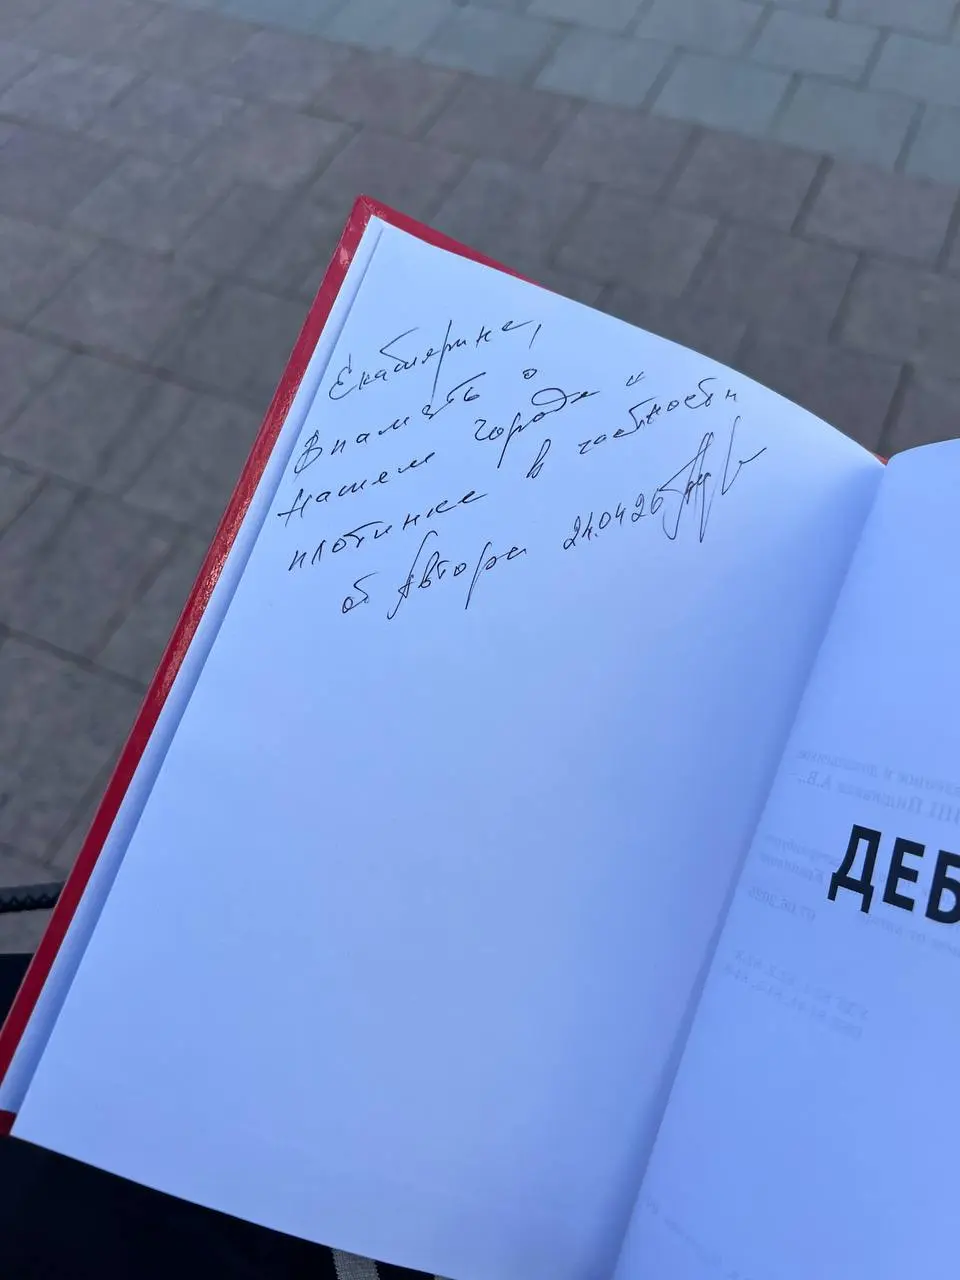 Екатерине,
В память о
нашем городе и
плотинке в частности
от Автора 24.04.26
ДЕБ